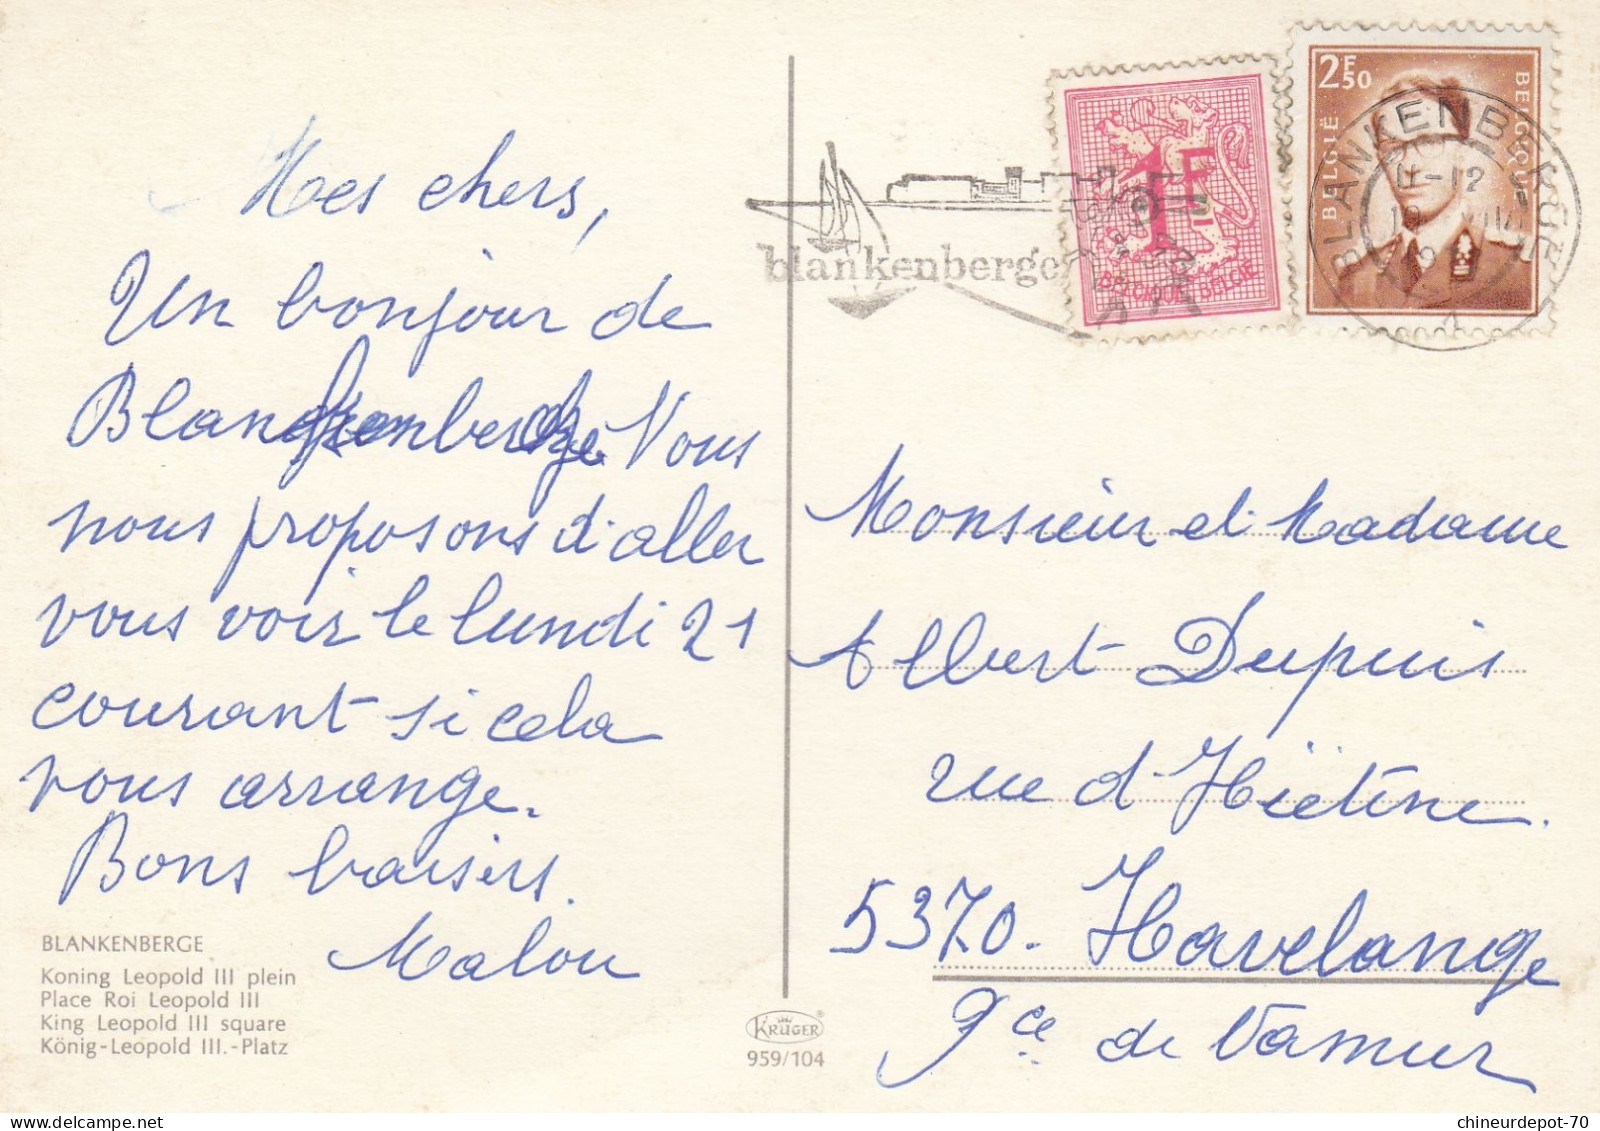 Mes chers,
Un bonjour de
Blankenberge. Vous
nous proposons d'aller
vous voir le lundi 21
courant si cela
vous arrange.
Bons baisers.
Malou
BLANKENBERGE
Koning Leopold III plein
Place Roi Leopold III
King Leopold III square
König-Leopold III.-Platz
KRÜGER
959/104
blankenberge
1F
BELGIQUE BELGIË
2F50
BELGIË
BELGIQUE
BLANKENBERGE
11-12
1
Monsieur et Madame
Albert Dupuis
rue d'Hiétine.
5370. Havelange
Pce de Namur
chineurdepot-70